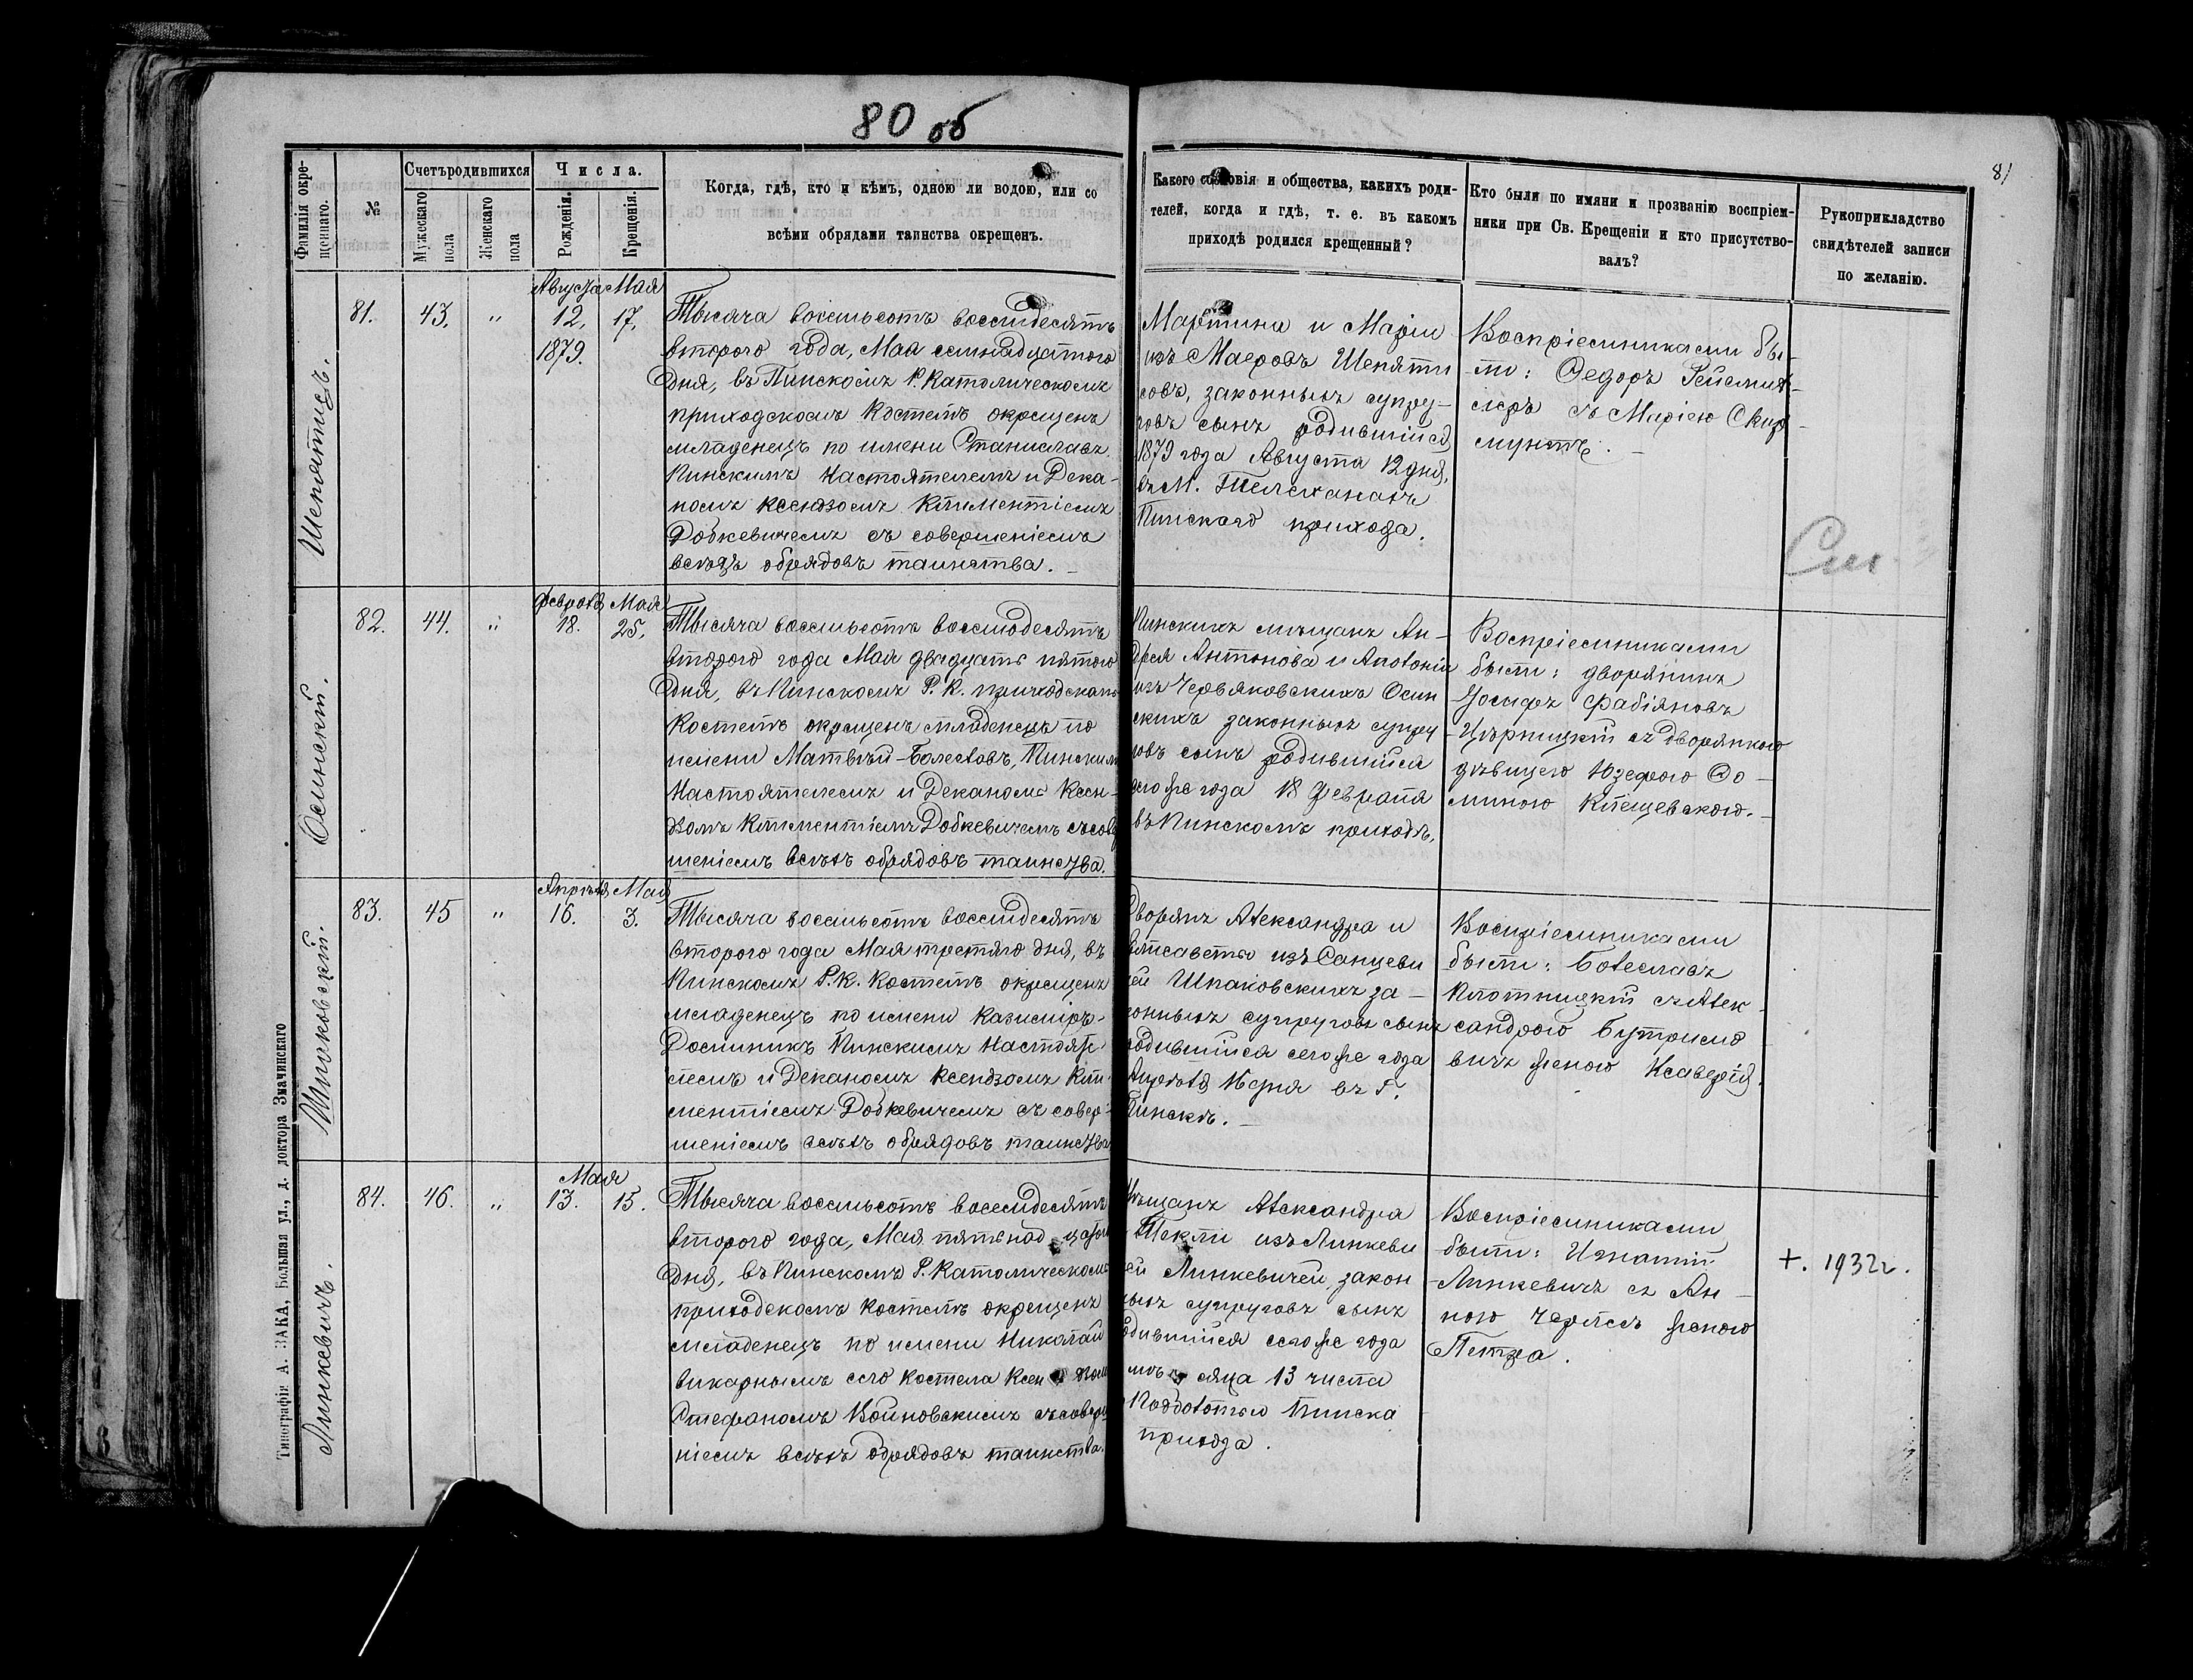 80 об
81
Фамилія окре-
щеннаго.
№
Счетъ родившихся
Мужескаго
пола
Женскаго
пола
Числа.
Рожденія.
Крещенія.
Когда, гдѣ, кто и кѣмъ, одною ли водою, или со
всѣми обрядами таинства окрещенъ.
Какого сословія и общества, какихъ роди-
телей, когда и гдѣ, т. е. въ какомъ
приходѣ родился крещенный?
Кто были по имяни и прозванію воспріем-
ники при Св. Крещеніи и кто присутство-
валъ?
Рукоприкладство
свидѣтелей записи
по желанію.
Шепятисъ.
81.
43.
"
Августа
12.
1879.
Мая
17.
Тысяча восемьсотъ восемдесятъ
второго года, Мая семнадцатого
дня, въ Пинскомъ Р. Католическомъ
приходскомъ Костелѣ окрещенъ
младенецъ по имени Станиславъ
Пинскимъ Настоятелемъ и Дека-
номъ Ксендзомъ Климентіемъ
Добкевичемъ съ совершеніемъ
всѣхъ обрядовъ таинства.
Мартина и Маріи
изъ Маеровъ Шепяти
совъ, законныхъ супру-
говъ сынъ родившійся
1879 года Августа 12 дня,
въ М. Телеханахъ
Пинскаго прихода.
Воспріемниками бы-
ли: Федоръ
съ Маріею Скир-
мунтъ.
См
Осинскій.
82.
44.
"
Февраля
18.
Мая
25.
Тысяча восемьсотъ восемдесятъ
второго года Мая двадцать пятого
дня, въ Пинскомъ Р. К. приходскомъ
Костелѣ окрещенъ младенецъ по
имени Матвѣй-Болеславъ, Пинскимъ
Настоятелемъ и Деканомъ Ксен-
дзомъ Климентіемъ Добкевичемъ съ совер
шеніемъ всѣхъ обрядовъ таинства.
Пинскихъ мѣщанъ Ан-
дрея Антонова и Аполоніи
изъ Червяковскихъ Осин
скихъ законныхъ супру
говъ сынъ родившійся
сего же года 18 Февраля
въ Пинскомъ приходѣ.
Воспріемниками
были: дворянинъ
Іосифъ Фабіяновъ
съ дворянкою
дѣвицею Юзефою Фо-
миною Клещевскою.
Шпаковскій.
83.
45
"
Апрѣля
16.
Мая
3.
Тысяча восемьсотъ восемдесятъ
второго года Мая третяго дня, въ
Пинскомъ Р. К. Костелѣ окрещенъ
младенецъ по имени Казиміръ-
Доминикъ Пинскимъ Настояте-
лемъ и Деканомъ Ксендзомъ Кли-
ментіемъ Добкевичемъ съ совер-
шеніемъ всѣхъ обрядовъ таинства
Дворянъ Александра и
Елисаветы изъ Санцеви
чей Шпаковскихъ за-
конныхъ супруговъ сынъ
родившійся сего же года
Апрѣля 16 дня въ Г.
Пинскѣ.
Воспріемниками
были: Болеславъ
Плотницкій съ Алек-
сандрою Бутримо
вичъ женою Ксаверія.
Линкевичъ.
84.
46.
"
Мая
13.
15.
Тысяча восемьсотъ восемдесятъ
второго года, Мая пятьнадцатого
дня, въ Пинскомъ Р. Католическомъ
приходскомъ Костелѣ окрещенъ
младенецъ по имени Николай
викарнымъ сего Костела Ксендзомъ
Стефаномъ Войновскимъ съ соверш
ніемъ всѣхъ обрядовъ таинства.
Мѣщанъ Александра
и Текли изъ Линкеви
чей Линкевичей, закон
ныхъ супруговъ сынъ
родившійся сего же года
мѣсяца 13 числа
Пинска
прихода.
Воспріемниками
были: Игнатій
Линкевичъ съ Ан-
ною женою
Петра.
+. 1932 г.
Типографія А. ЗАКА, Большая ул., д. доктора Значинскаго